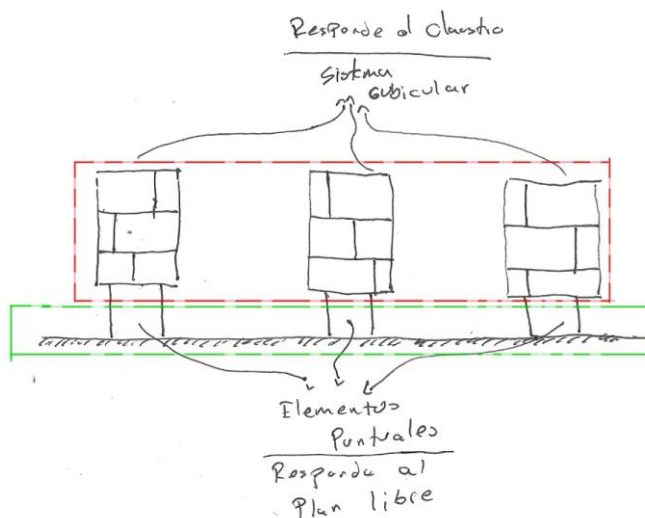 Responde al Claustro
Sistema
cubicular
Elementos
Puntuales
Responde al
Plan libre